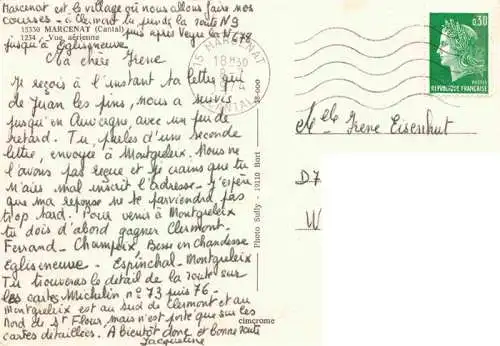 Marcenat est le village où nous allons faire nos
courses - à Clermont tu prends la route N9
puis après Veyre la N 678
jusqu'à Egliseneuve
15330 MARCENAT (Cantal)
1234 - Vue aérienne
Ma chère Irène
Je reçois à l'instant ta lettre qui
de Juan les pins, nous a suivis
jusqu'en Auvergne avec un peu de
retard. Tu parles d'une seconde
lettre, envoyée à Montgreleix. Nous ne
l'avons pas reçue et je crains que tu
n'aies mal inscrit l'adresse - J'espère
que ma réponse ne te parviendra pas
trop tard. Pour venir à Montgreleix
tu dois d'abord gagner Clermont-
Ferrand - Champeix, Besse en Chandesse
Egliseneuve - Espinchal - Montgreleix
Tu trouveras le detail de la route sur
les cartes Michelin n° 73 puis 76 -
Montgreleix est au sud de Clermont et au
Nord de St Flour, mais n'est porté que sur les
cartes détaillées. A bientôt donc et bonne route
Jacqueline
Photo Suffy - 19110 Bort
cimcrome
15 MARCENAT
18H30
CANTAL
0,30
POSTES
REPUBLIQUE FRANÇAISE
Melle Irene Eisenhut
D 7
W